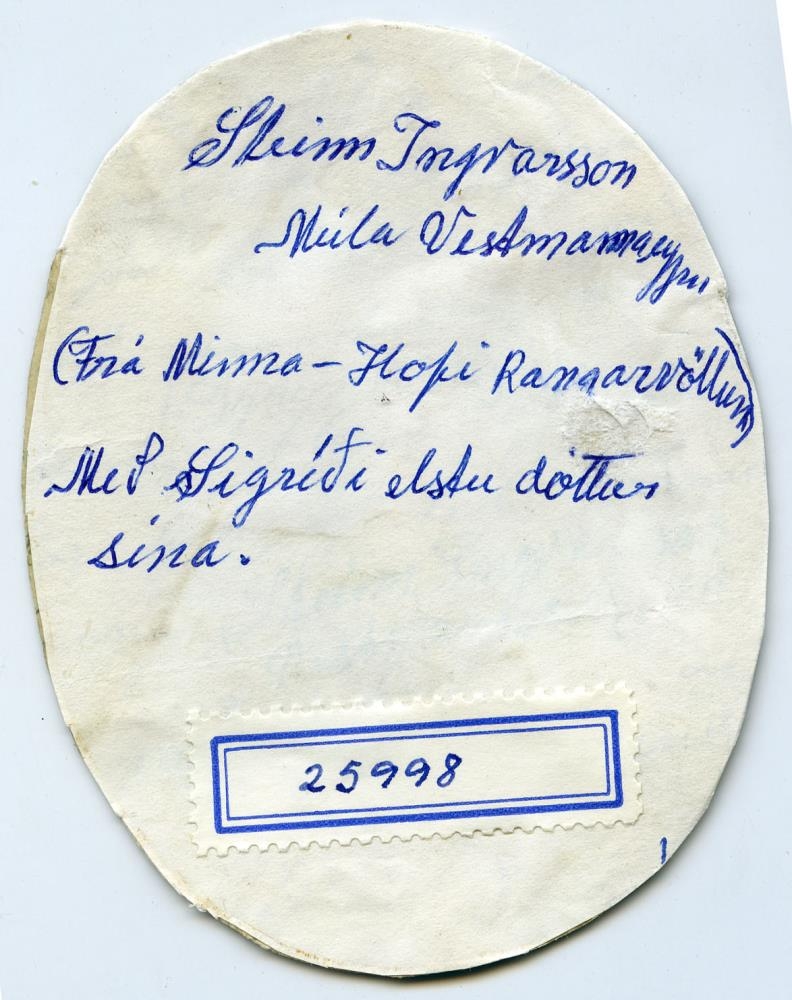 Steinn Ingvarsson
Múla Vestmannaeyjum
(Frá Minna-Hofi Rangarvöllum)
Með Sigríði elstu dóttur
sína.
25998
1